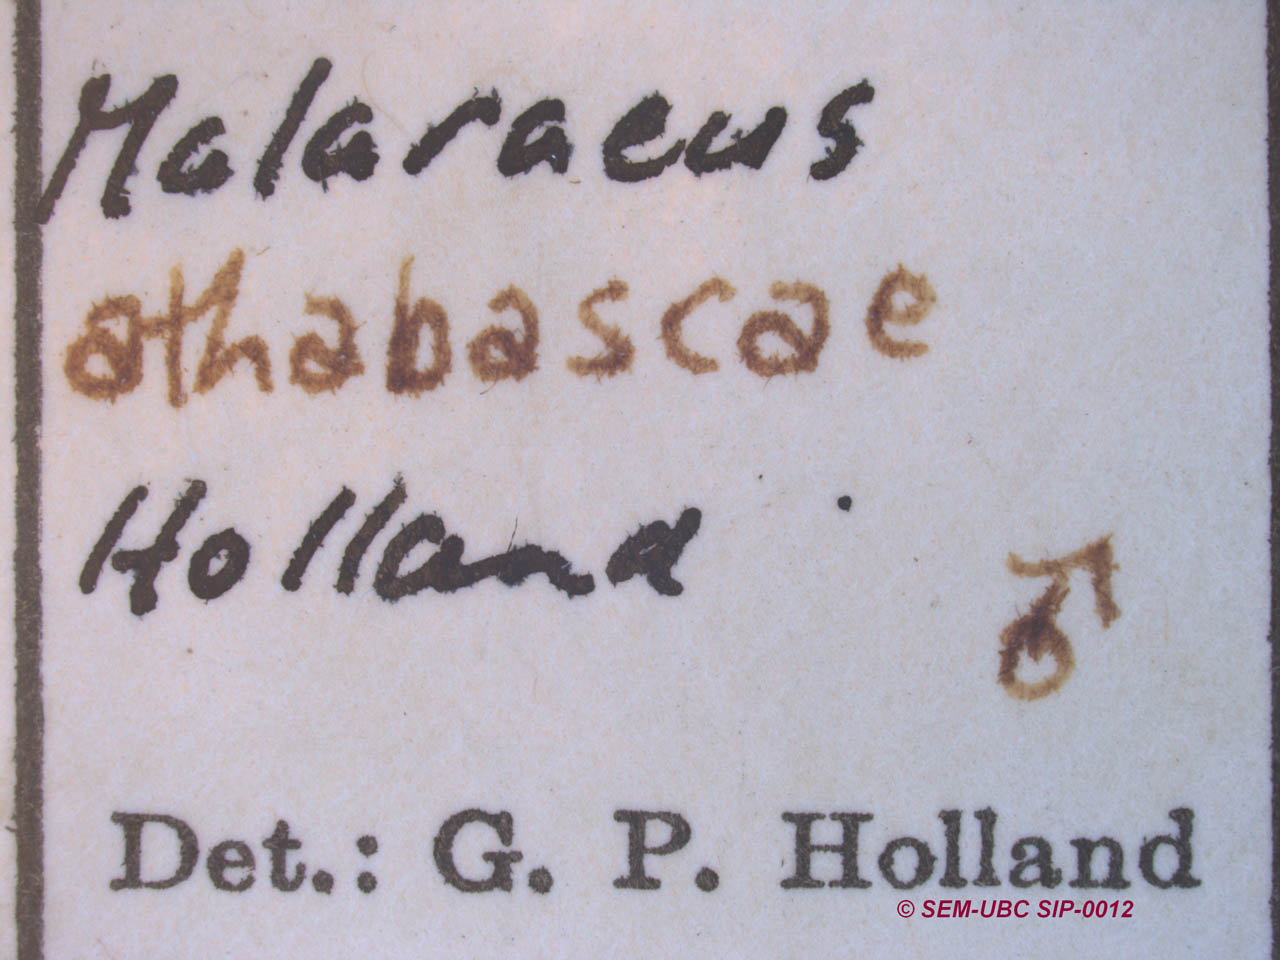 Malaraeus
athabascae
Holland
♂
Det.: G. P. Holland
© SEM-UBC SIP-0012